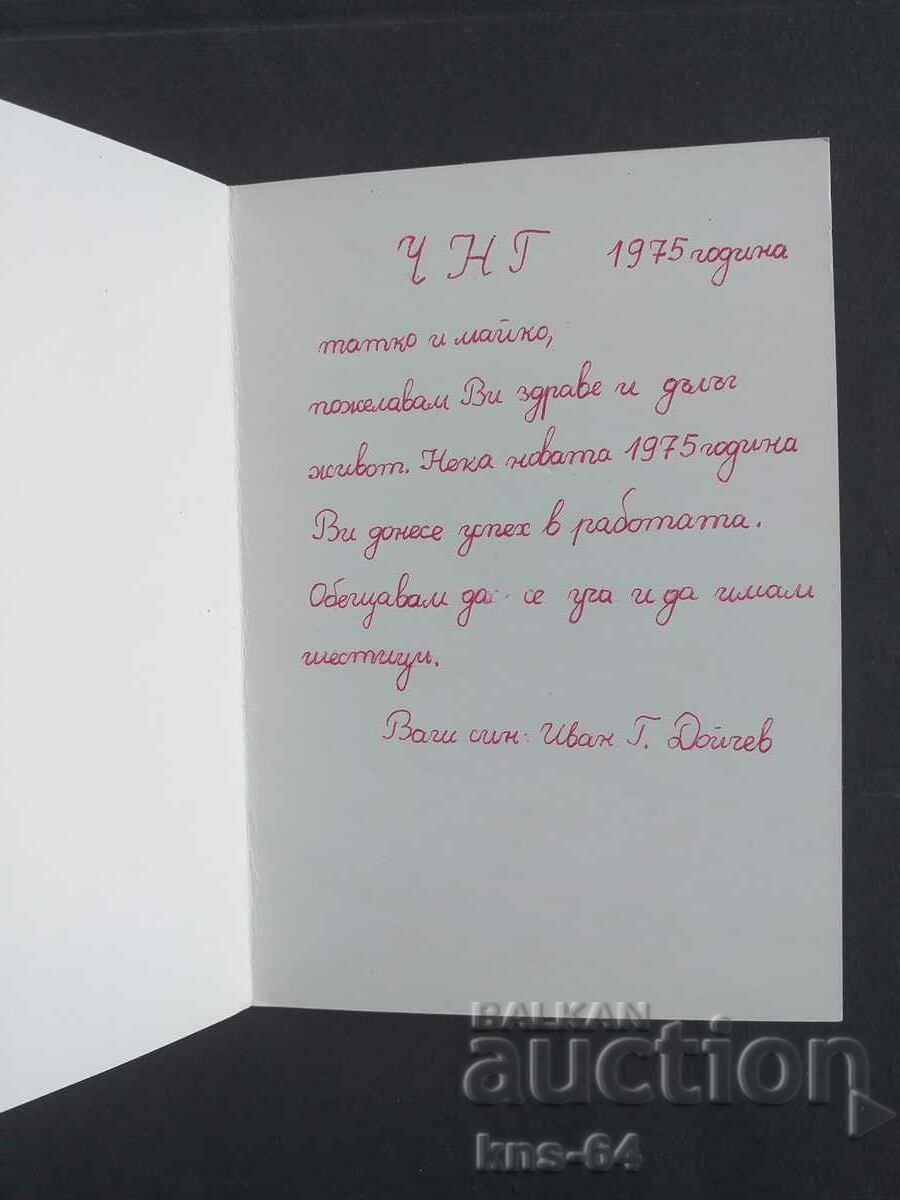 ЧНГ 1975 година
татко и майко,
пожелавам Ви здраве и дълъг
живот. Нека новата 1975 година
Ви донесе успех в работата.
Обещавам да се уча и да имам
шестици.
Ваш син: Иван Г. Дойчев
BALKAN
auction
kns-64